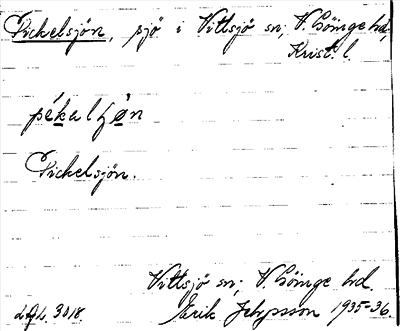 Pickelsjön, sjö i Vittsjö sn; V. Göinge hd,
Krist. l.
pékalʃø̀n
Pickelsjön.
Vittsjö sn; V. Göinge hd.
LAL. 3018. Erik Jeppsson 1935-36.